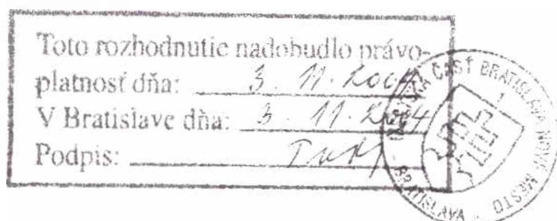 Toto rozhodnutie nadobudlo právo-
platnosť dňa: 3. 11. 2004
V Bratislave dňa: 3. 11. 2004
Podpis:
MESTSKÁ ČASŤ BRATISLAVA NOVÉ MESTO
1
BRATISLAVA